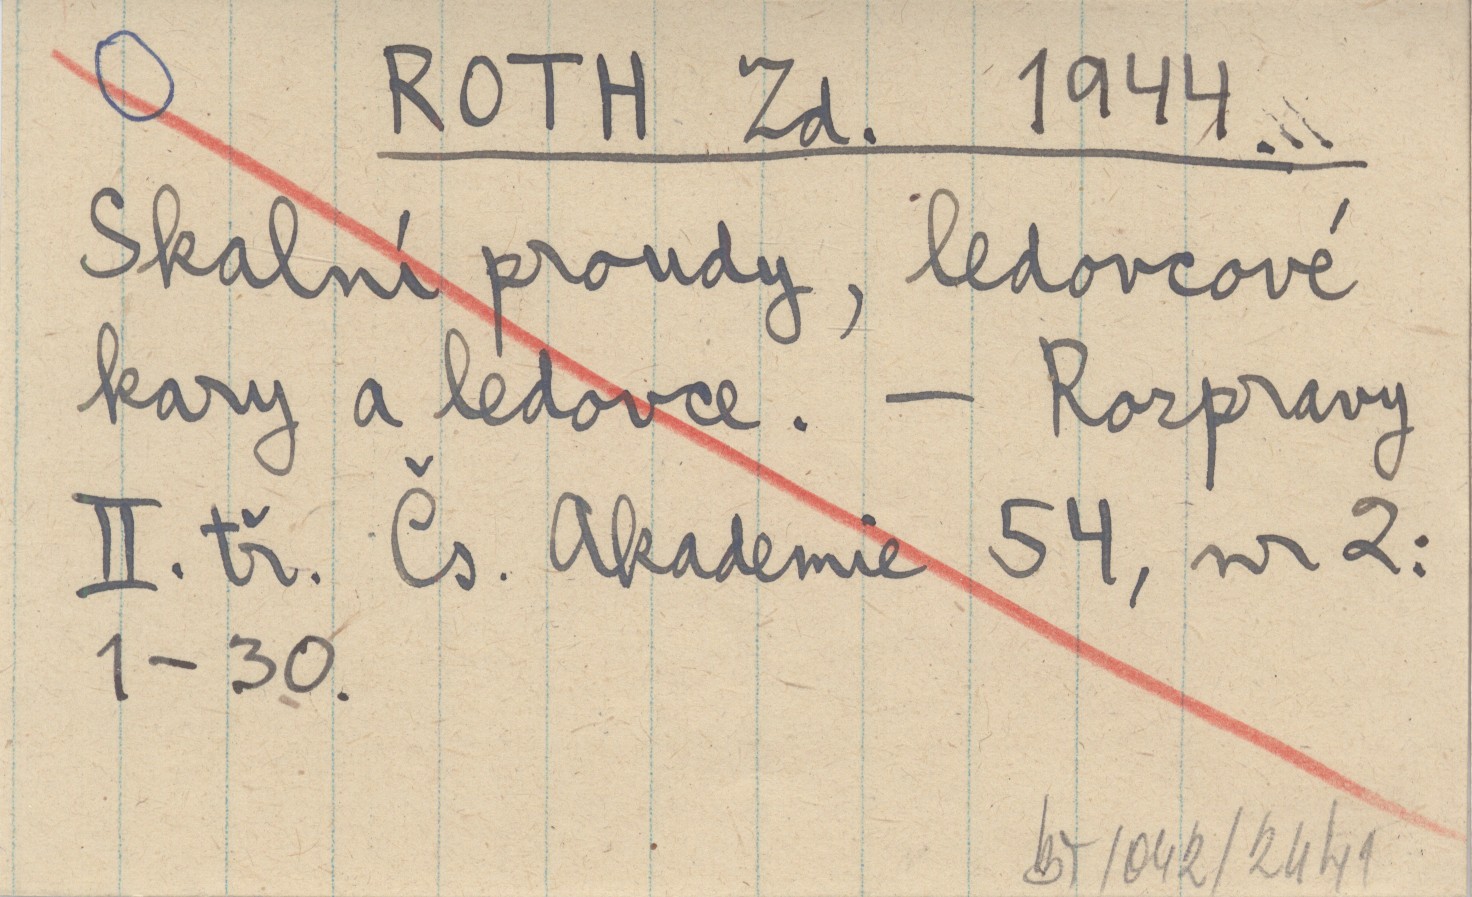 ROTH Zd. 1944.
Skalní proudy, ledovcové
kary a ledovce. — Rozpravy
II. tř. Čs. Akademie 54, nr 2:
1-30.